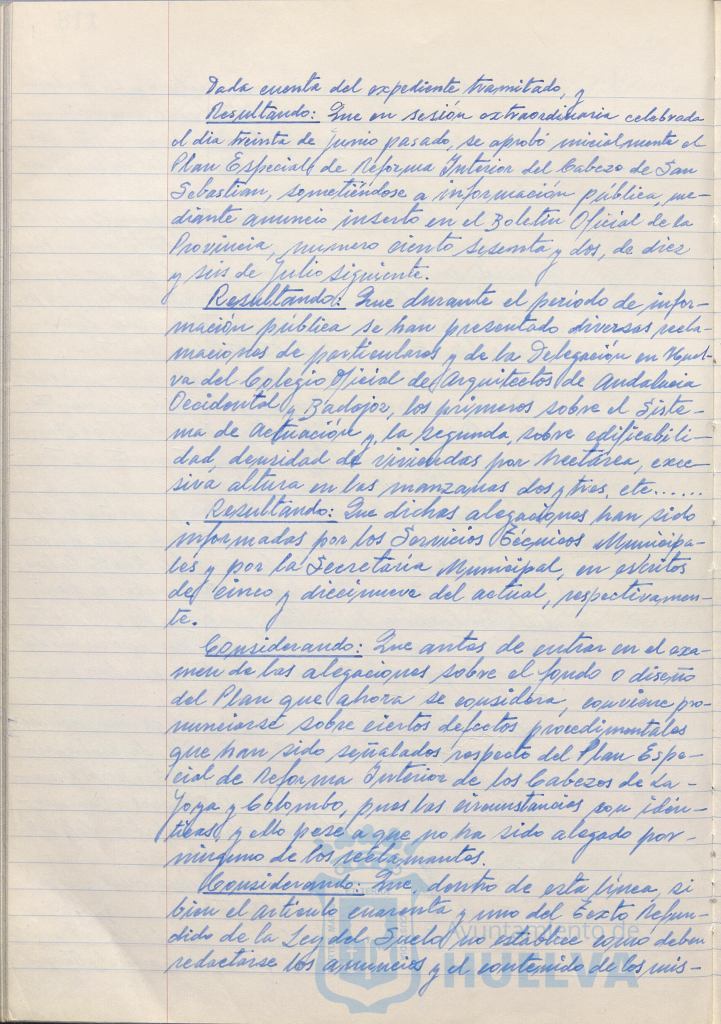 Dada cuenta del expediente tramitado, y
Resultando: Que en sesión extraordinaria celebrada
el dia treinta de Junio pasado, se aprobó inicialmente el
Plan Especial de Reforma Interior del Cabezo de San
Sebastian, sometiéndose a información pública, me-
diante anuncio inserto en el Boletín Oficial de la
Provincia, numero ciento sesenta y dos, de diez
y seis de Julio siguiente.
Resultando: Que durante el periodo de infor-
mación pública se han presentado diversas recla-
maciones de particulares y de la Delegación en Huel-
va del Colegio Oficial de Arquitectos de Andalucia
Occidental y Badajoz, los primeros sobre el Siste-
ma de Actuación y, la segunda, sobre edificabili-
dad, densidad de viviendas por hectárea, exce-
siva altura en las manzanas dos y tres, etc......
Resultando: Que dichas alegaciones han sido
informadas por los Servicios Técnicos Municipa-
les y por la Secretaría Municipal, en escritos
de cinco y diecinueve del actual, respectivamen-
te.
Considerando: Que antes de entrar en el exa-
men de las alegaciones sobre el fondo o diseño
del Plan que ahora se considera, conviene pro-
nunciarse sobre ciertos defectos procedimentales
que han sido señalados respecto del Plan Espe-
cial de Reforma Interior de los Cabezos de La-
Joya y Colombo, pues las circunstancias son idén-
ticas, y ello pese a que no ha sido alegado por-
ninguno de los reclamantes.
Considerando: Que, dentro de esta línea, si
bien el artículo cuarenta y uno del Texto Refun-
dido de la Ley del Suelo no establece como deben
redactarse los anuncios y el contenido de los mis-
Ayuntamiento de
HUELVA